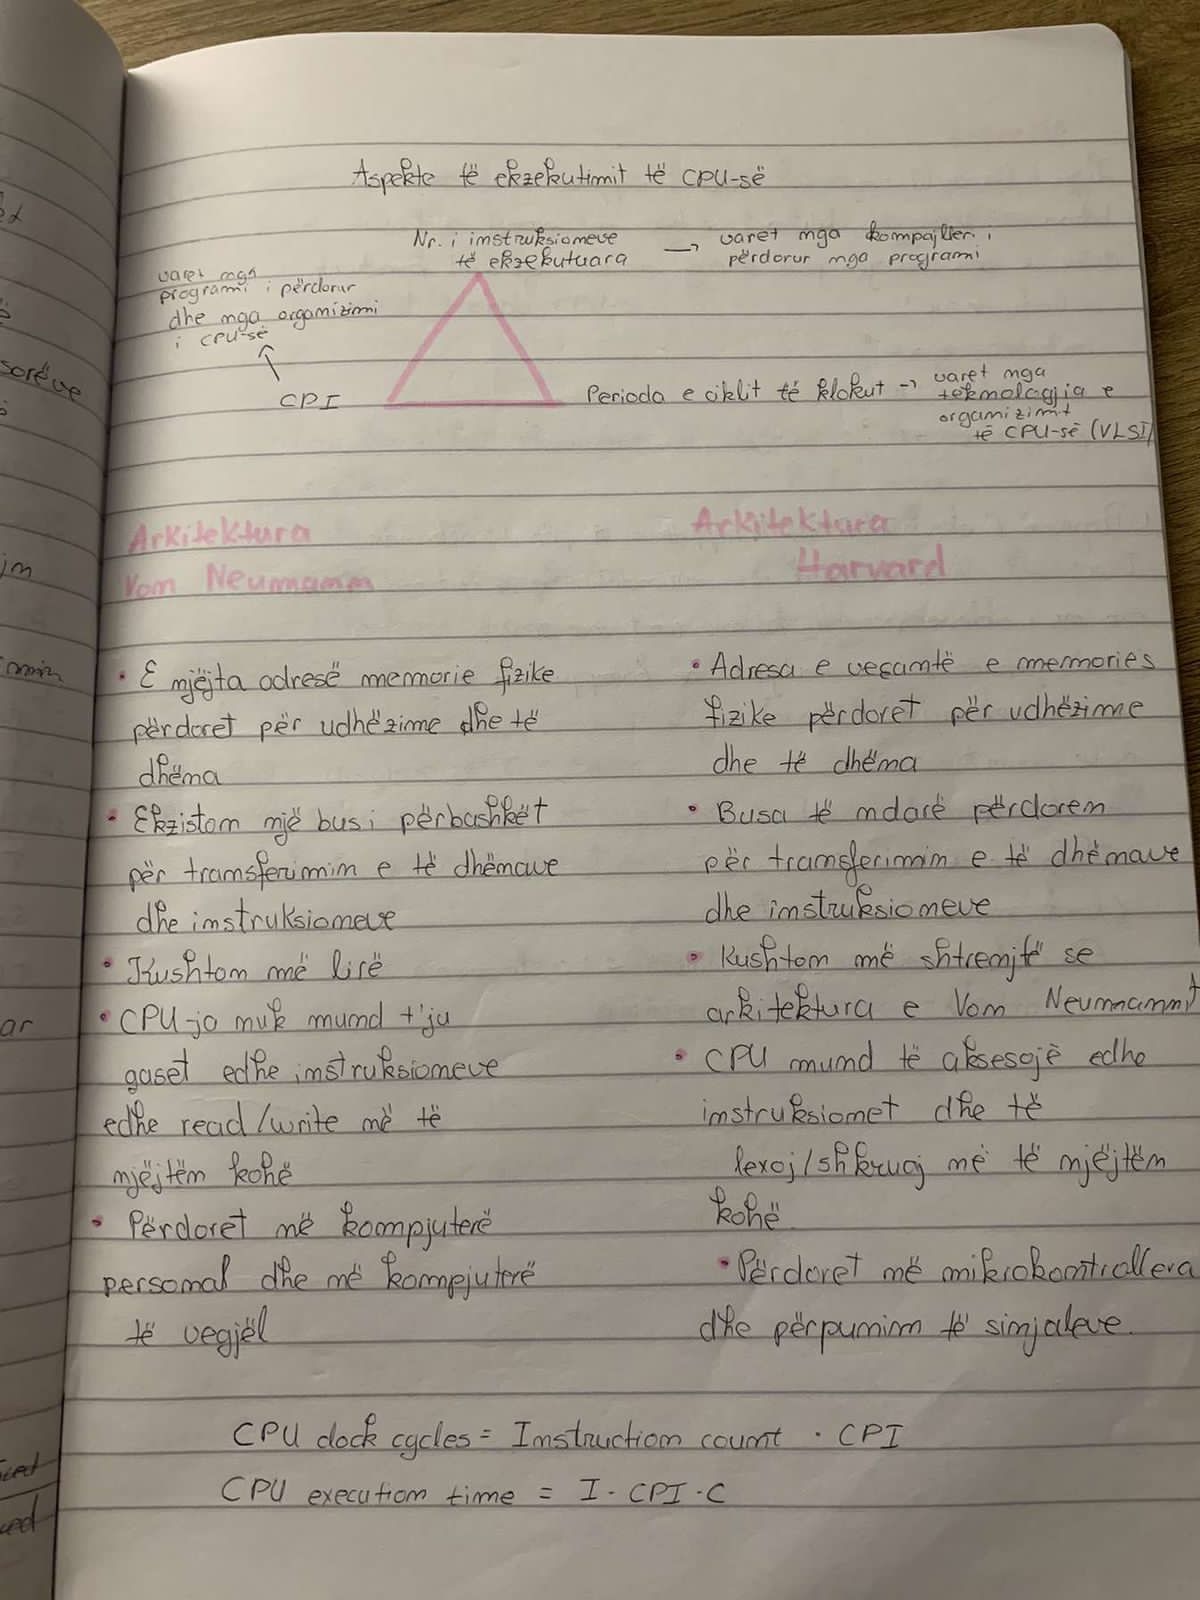 Aspekte të ekzekutimit të CPU-së
Nr. i instruksioneve → varet nga kompajlleri i
të ekzekutuara përdorur nga programi
varet nga
programi i përdorur
dhe nga organizimi
i CPU-së
CPI
Perioda e ciklit të klokut → varet nga
teknologjia e
organizimit
të CPU-së (VLSI)
Arkitektura
Von Neumann
• E njëjta adresë memorie fizike
përdoret për udhëzime dhe të
dhëna
• Ekziston një bus i përbashkët
për transferimin e të dhënave
dhe instruksioneve
• Kushton më lirë
• CPU-ja nuk mund t'ju
qaset edhe instruksioneve
edhe read/write në të
njëjtën kohë
• Përdoret në kompjuterë
personal dhe në kompjuterë
të vegjël
Arkitektura
Harvard
• Adresa e veçantë e memories
fizike përdoret për udhëzime
dhe të dhëna
• Busa të ndarë përdoren
për transferimin e të dhënave
dhe instruksioneve
• Kushton më shtrenjtë se
arkitektura e Von Neumannit
• CPU mund të aksesojë edhe
instruksionet dhe të
lexoj/shkruaj në të njëjtën
kohë
• Përdoret në mikrokontrollera
dhe përpunim të sinjaleve.
CPU clock cycles = Instruction count · CPI
CPU execution time = I · CPI · C